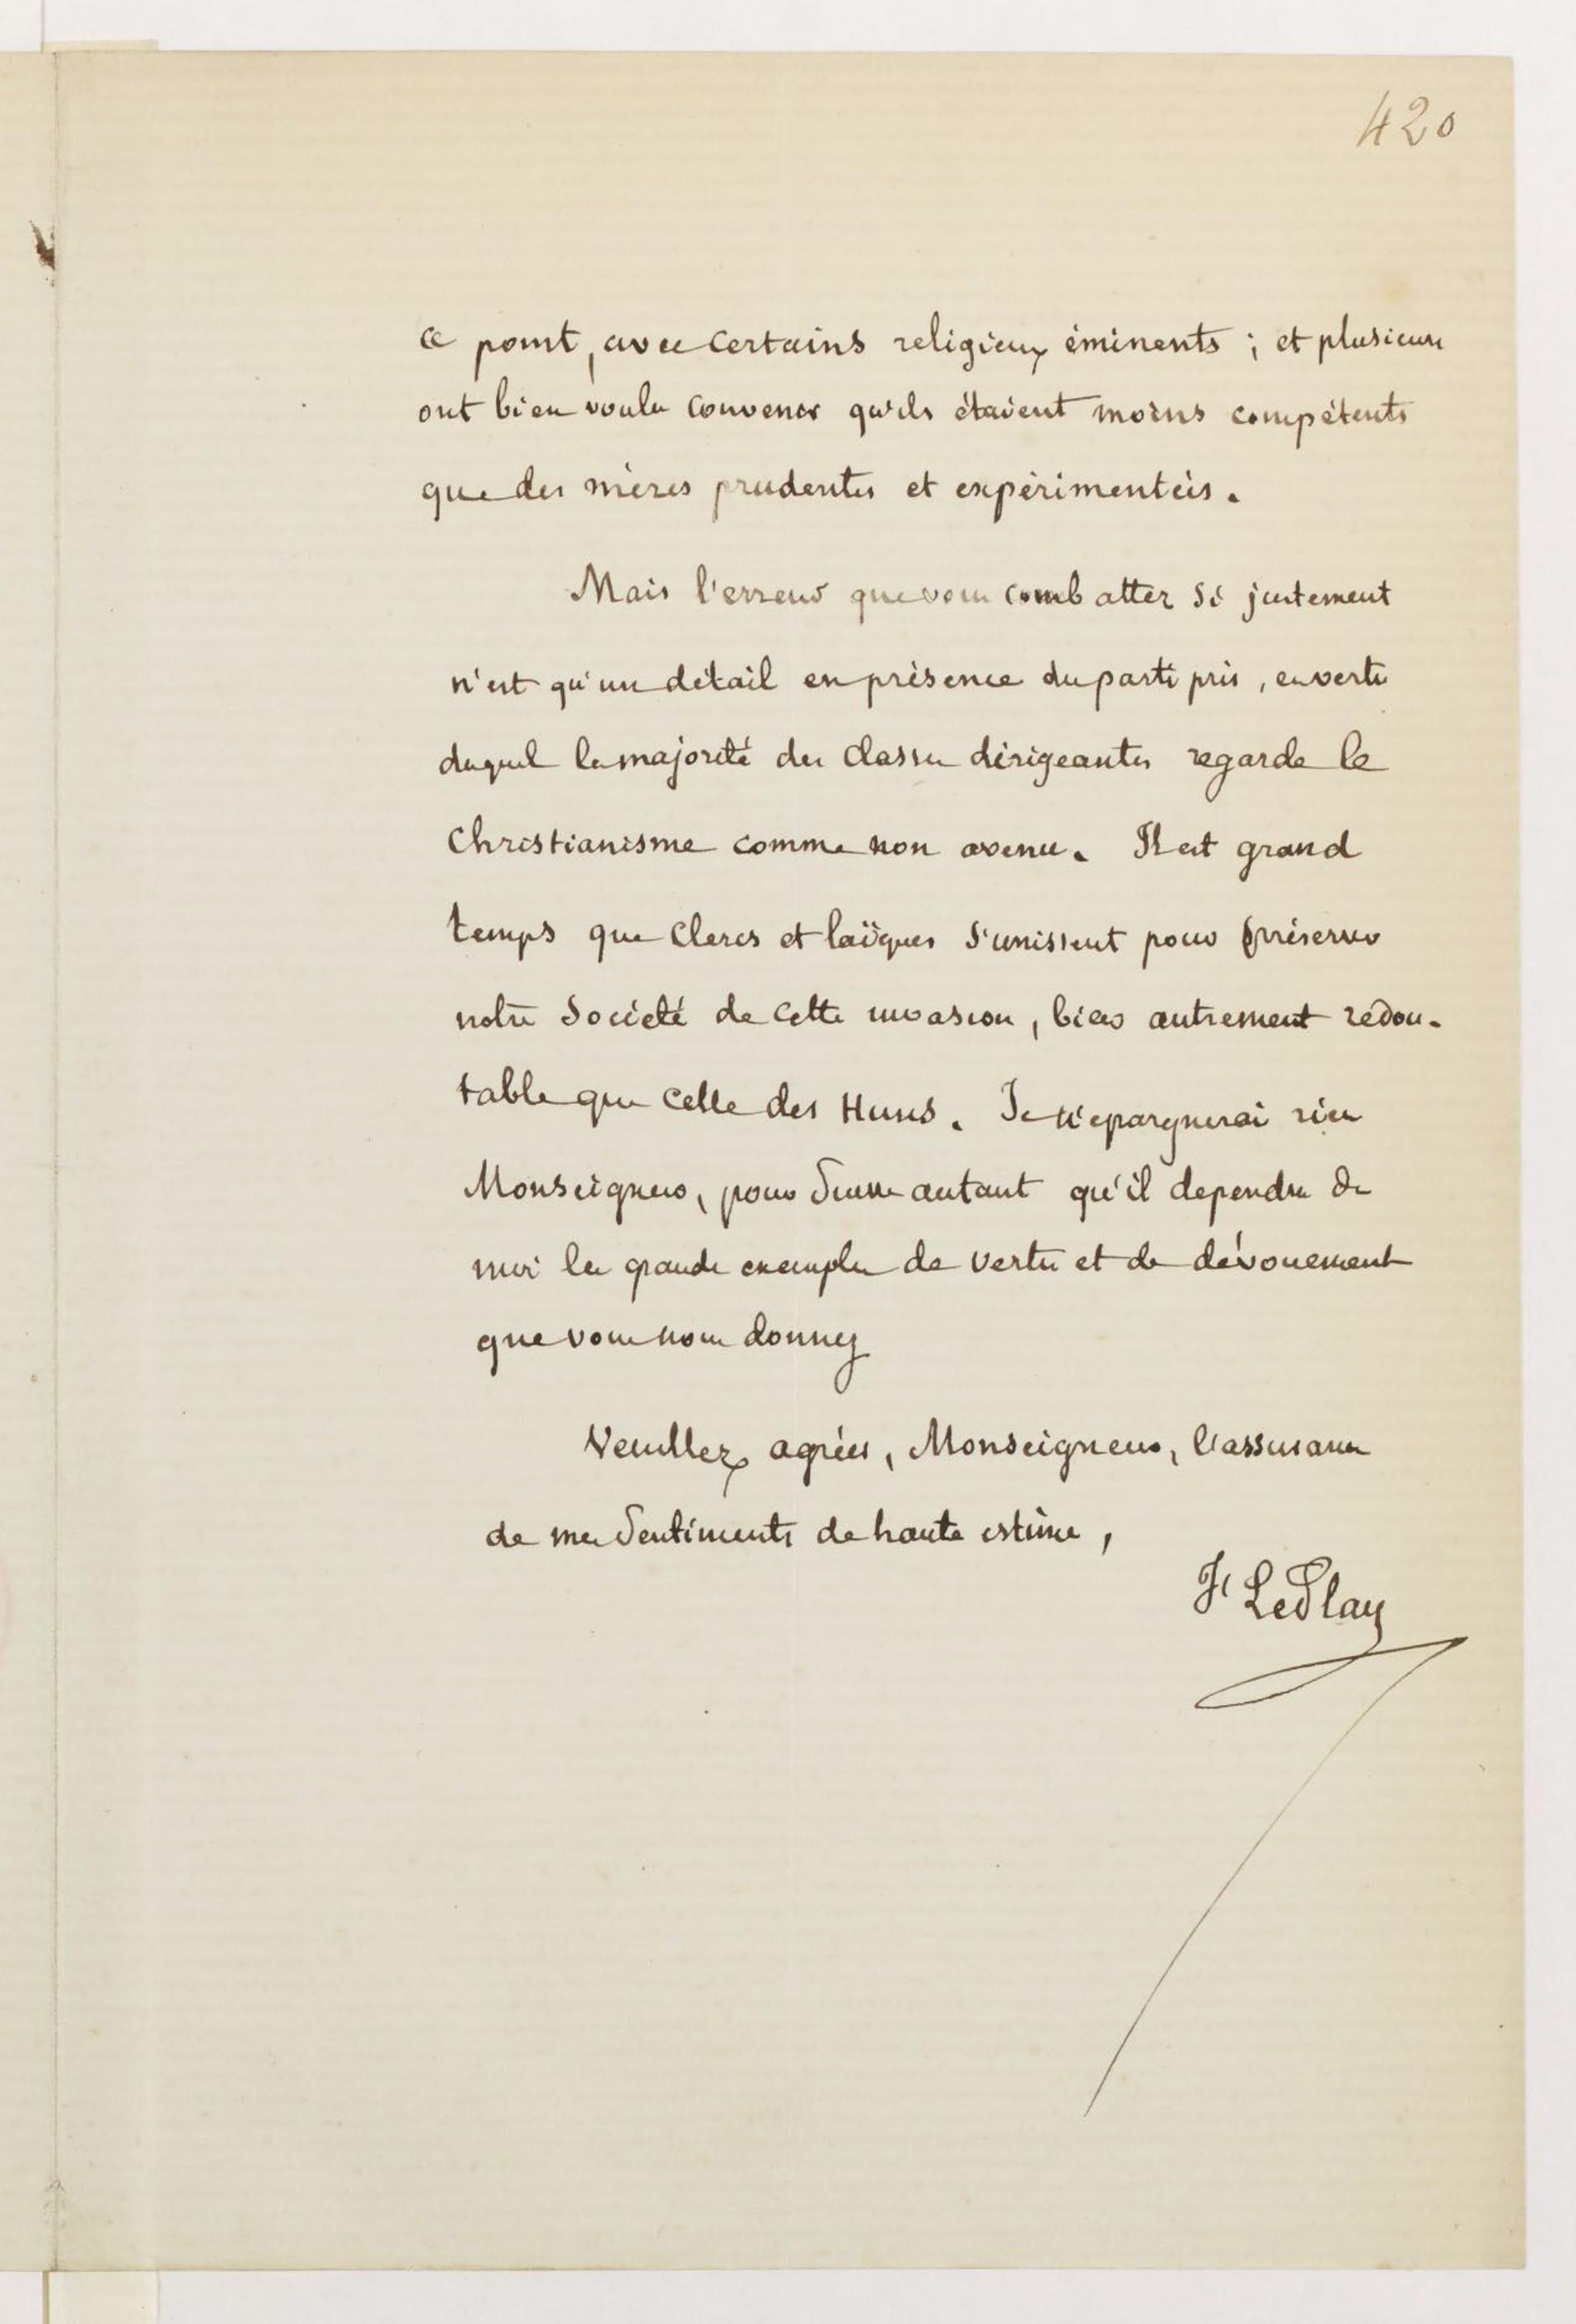 420
ce point, avec certains religieux éminents ; et plusieurs
ont bien voulu convenir qu'ils étaient moins compétents
que des mères prudentes et expérimentées.
Mais l'erreur que vous combattez si justement
n'est qu'un détail en présence du parti pris, en vertu
duquel la majorité des classes dirigeantes regarde le
Christianisme comme non avenu. Il est grand
temps que clercs et laïques s'unissent pour préserver
notre société de cette invasion, bien autrement redou-
table que celle des Huns. Je n'epargnerai rien
Monseigneur, pour suivre autant qu'il dependra de
moi les grands exemples de vertu et de dévouement
que vous nous donnez
Veuillez agréer, Monseigneur, l'assurance
de mes sentiments de haute estime,
F. Le Play